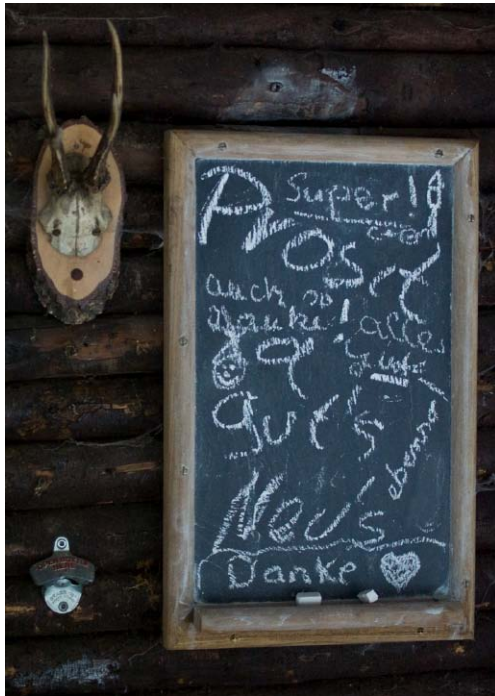 Super!
Prosit
auch so
danke!
alles
Gute
a
guts
ebenso
Neus
Danke